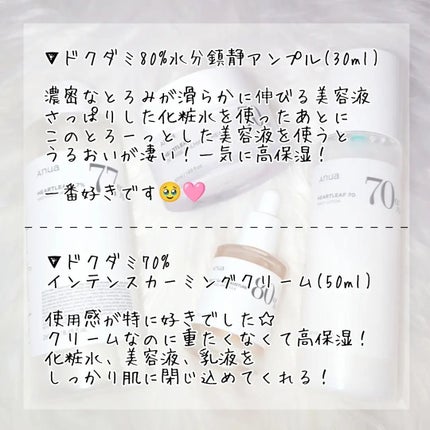 ▼ドクダミ80%水分鎮静アンプル(30ml)
濃密なとろみが滑らかに伸びる美容液
さっぱりした化粧水を使ったあとに
このとろーっとした美容液を使うと
うるおいが凄い!一気に高保湿!
一番好きです🥹🩷
▼ドクダミ70%
インテンスカーミングクリーム(50ml)
使用感が特に好きでした☆
クリームなのに重たくなくて高保湿!
化粧水、美容液、乳液を
しっかり肌に閉じ込めてくれる!
Anua
HEARTLEAF 70
70%
Anua
77
Anua
80%